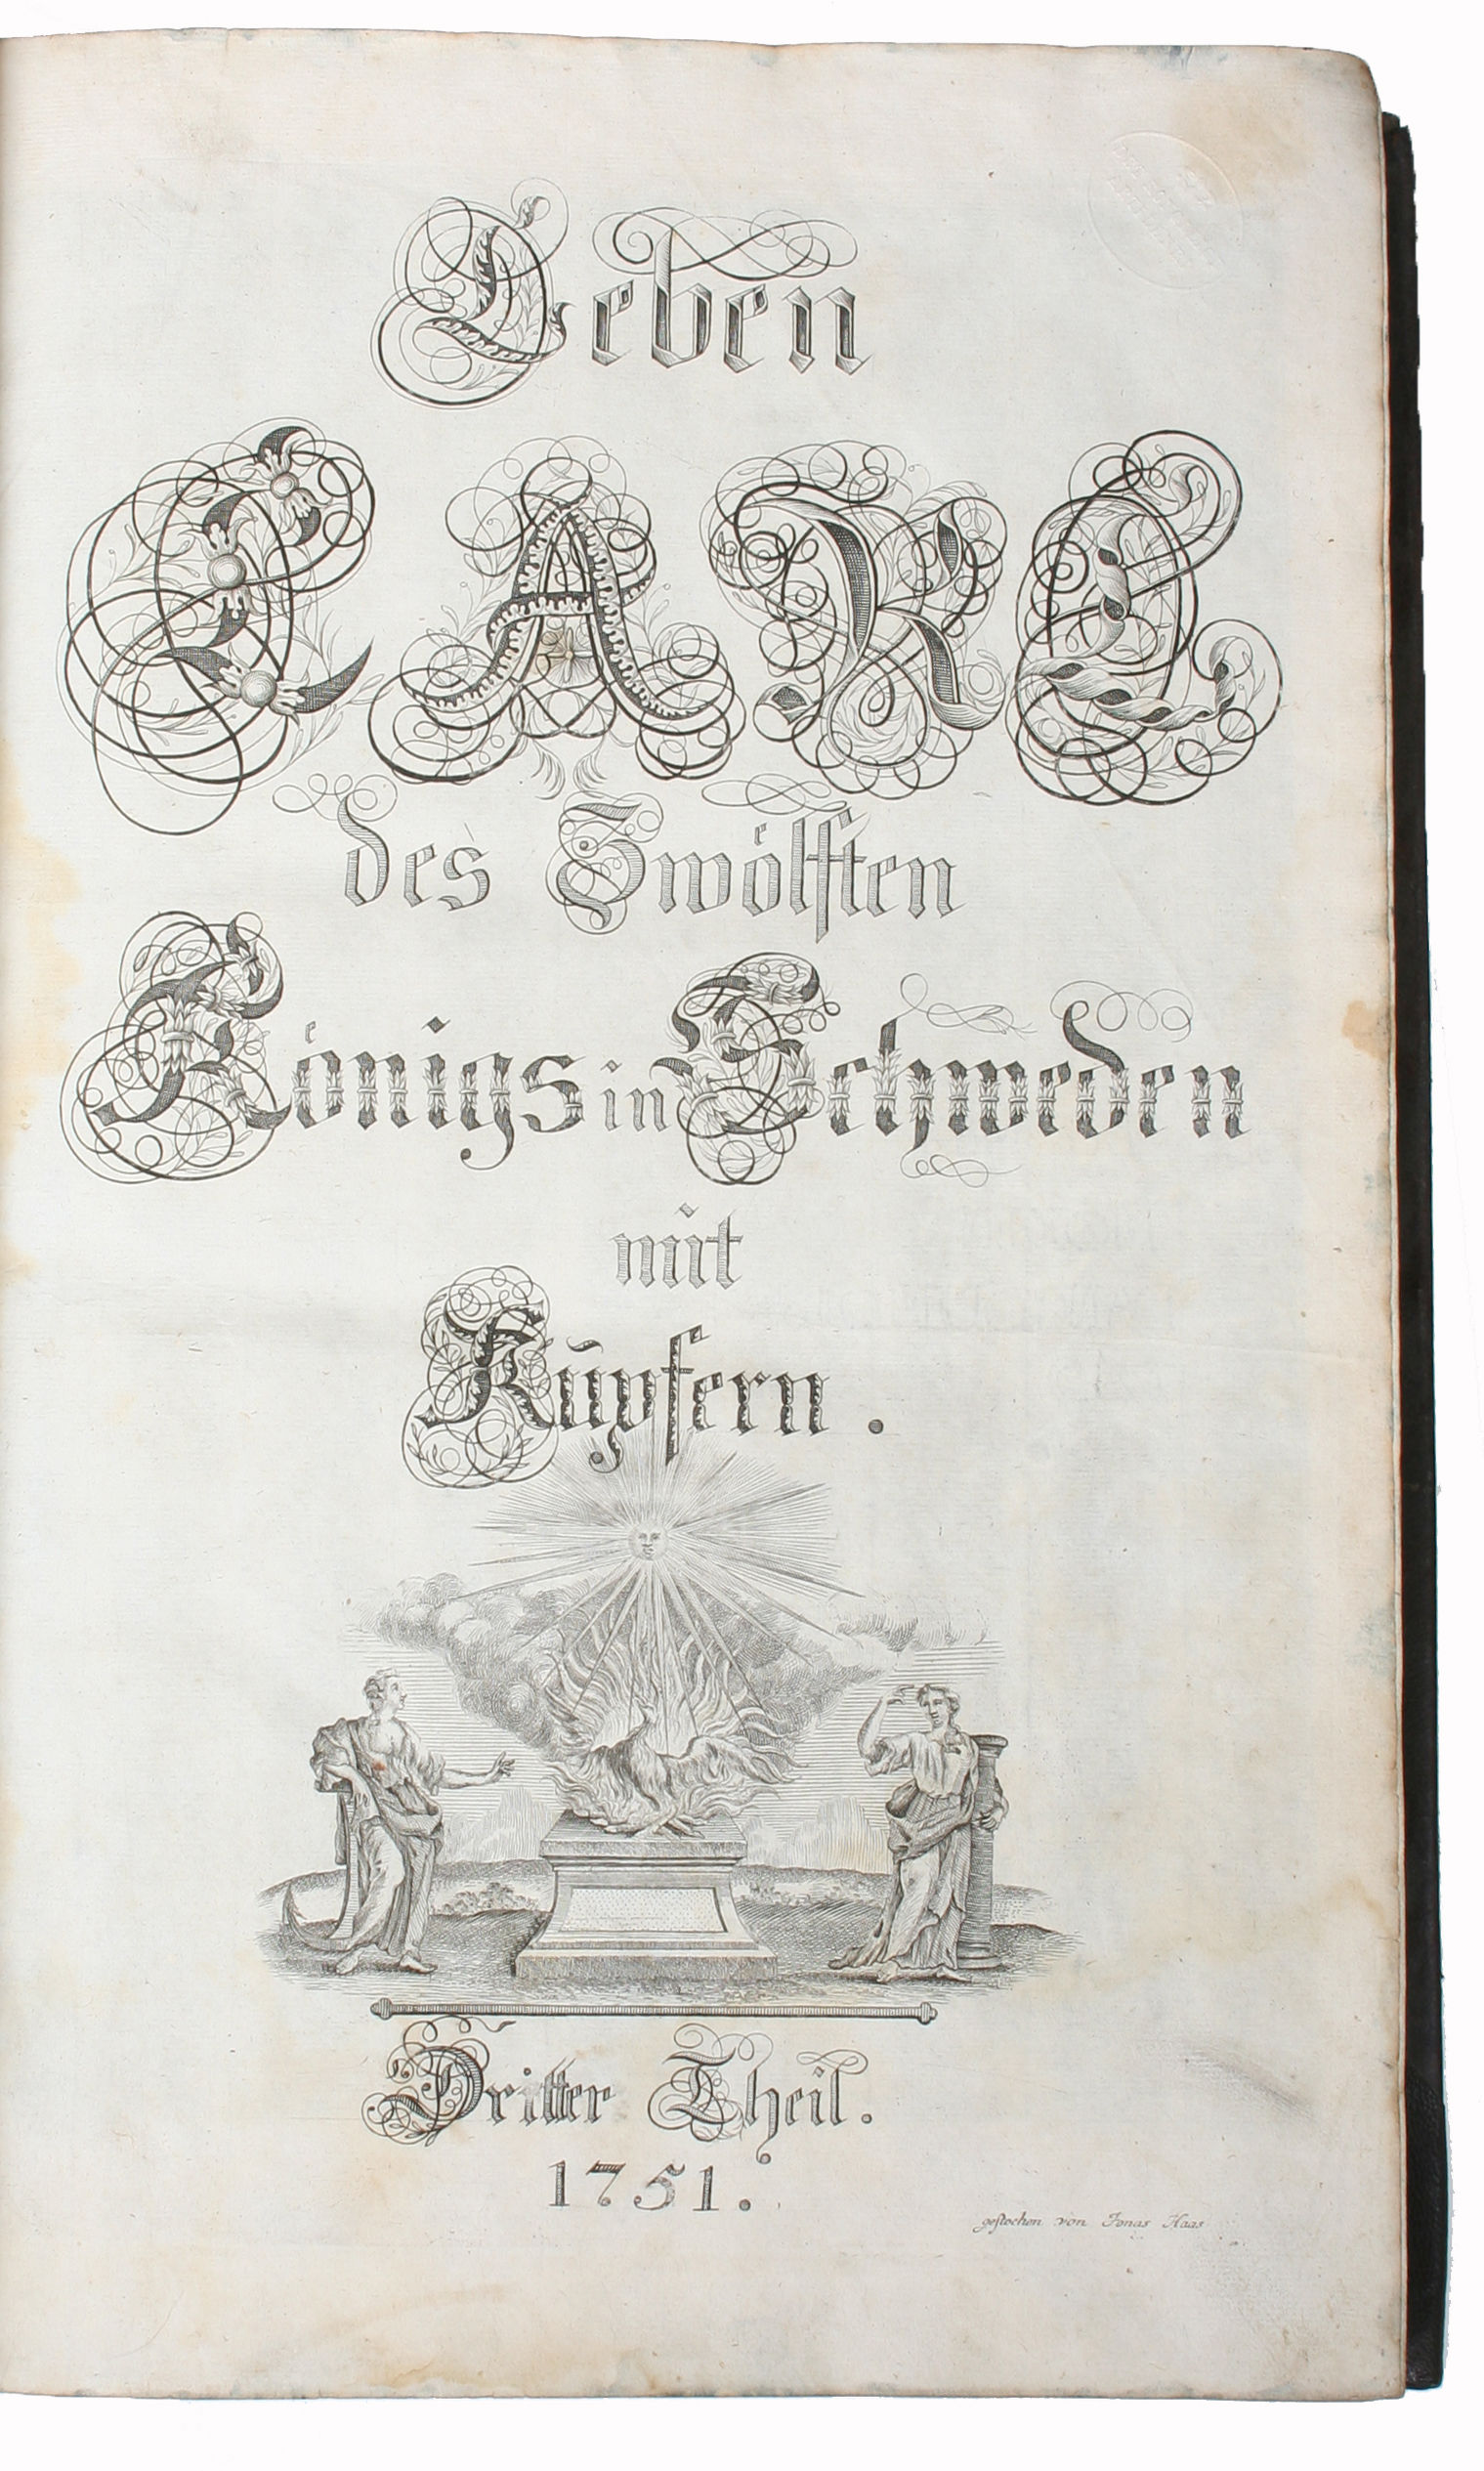 Leben
CARL
des Zwölften
Königs in Schweden
mit
Kupfern.
Dritter Theil.
1751.
gestochen von Jonas Haas